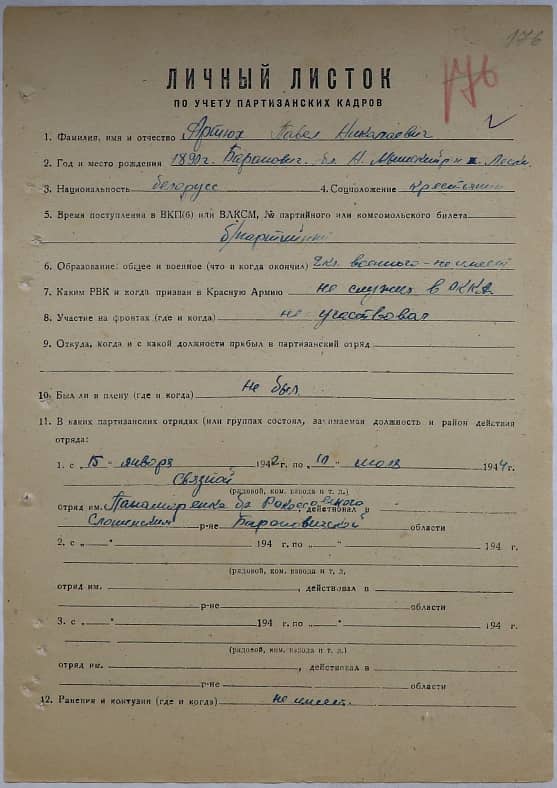 176
176
ЛИЧНЫЙ ЛИСТОК
ПО УЧЕТУ ПАРТИЗАНСКИХ КАДРОВ
1. Фамилия, имя и отчество Артюх Павел Николаевич
2. Год и место рождения 1890 г. Баранович. обл Н. Мышский р-н
3. Национальность белорусс 4. Соцположение крестьянин
5. Время поступления в ВКП(б) или ВЛКСМ, № партийного или комсомольского билета
б/партийный
6. Образование: общее и военное (что и когда окончил) 2 кл. военного - не имеет
7. Каким РВК и когда призван в Красную Армию не служил в РККА
8. Участие на фронтах (где и когда) не участвовал
9. Откуда, когда и с какой должности прибыл в партизанский отряд
10. Был ли в плену (где и когда) не был
11. В каких партизанских отрядах (или группах состоял, занимаемая должность и район действия
отряда:
1. с „15 - января 1942 г. по „10" июля 1944 г.
связной
(рядовой, ком. взвода и т. д.)
отряд им. Панамаренко бр Рокоссовского, действовал в
Слонимским р-не Барановичской области
2. с „ — " 194 г. по „ — " 194 г.
(рядовой, ком. взвода и т. д.
отряд им. , действовал в
р-не области
3. с „ — " 194 г. по „ — " 194 г.
(рядовой, ком. взвода и т. д.)
отряд им. , действовал в
р-не области
12. Ранения и контузии (где и когда) не имеет.